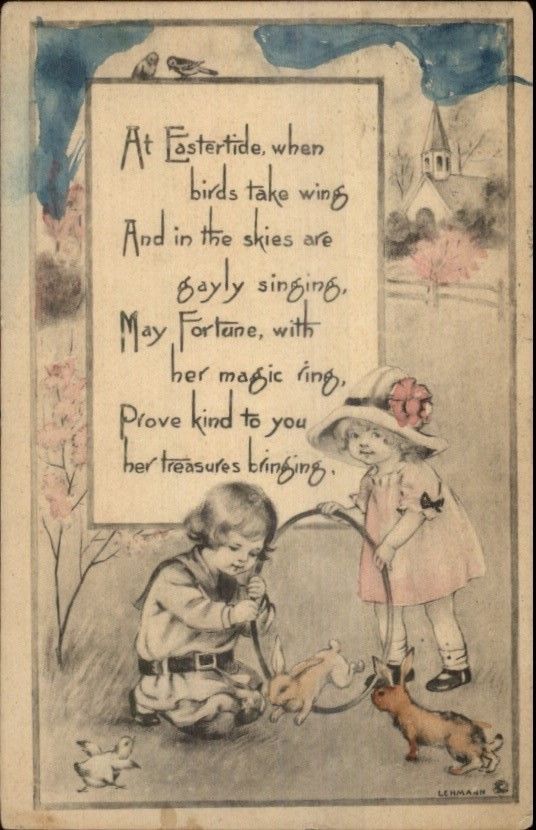 At Eastertide, when
birds take wing
And in the skies are
gayly singing,
May Fortune, with
her magic ring,
Prove kind to you
her treasures bringing.
LEHMANN